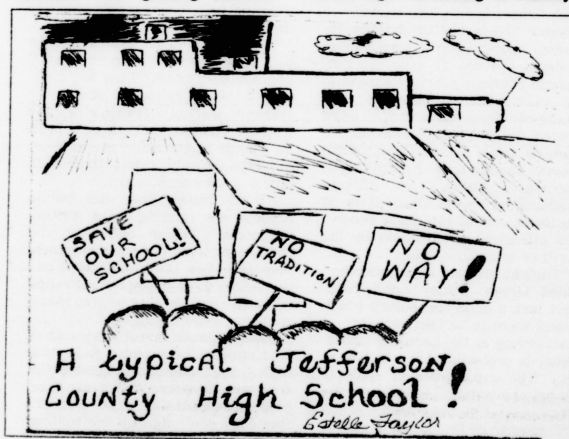 SAVE
OUR
SCHOOL!
NO
TRADITION
NO
WAY!
A typical Jefferson
County High School!
Estelle Taylor